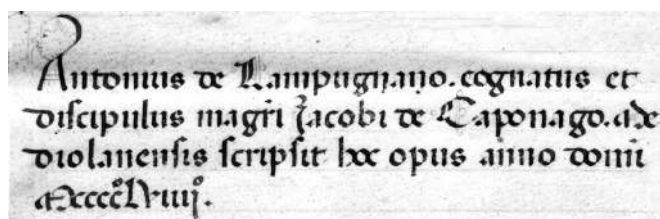 Antonius de Lampugnano. cognatus et
discipulus magri Jacobi de Caponago. Me
diolanensis scripsit hoc opus anno domi
MccccºLviiijº.